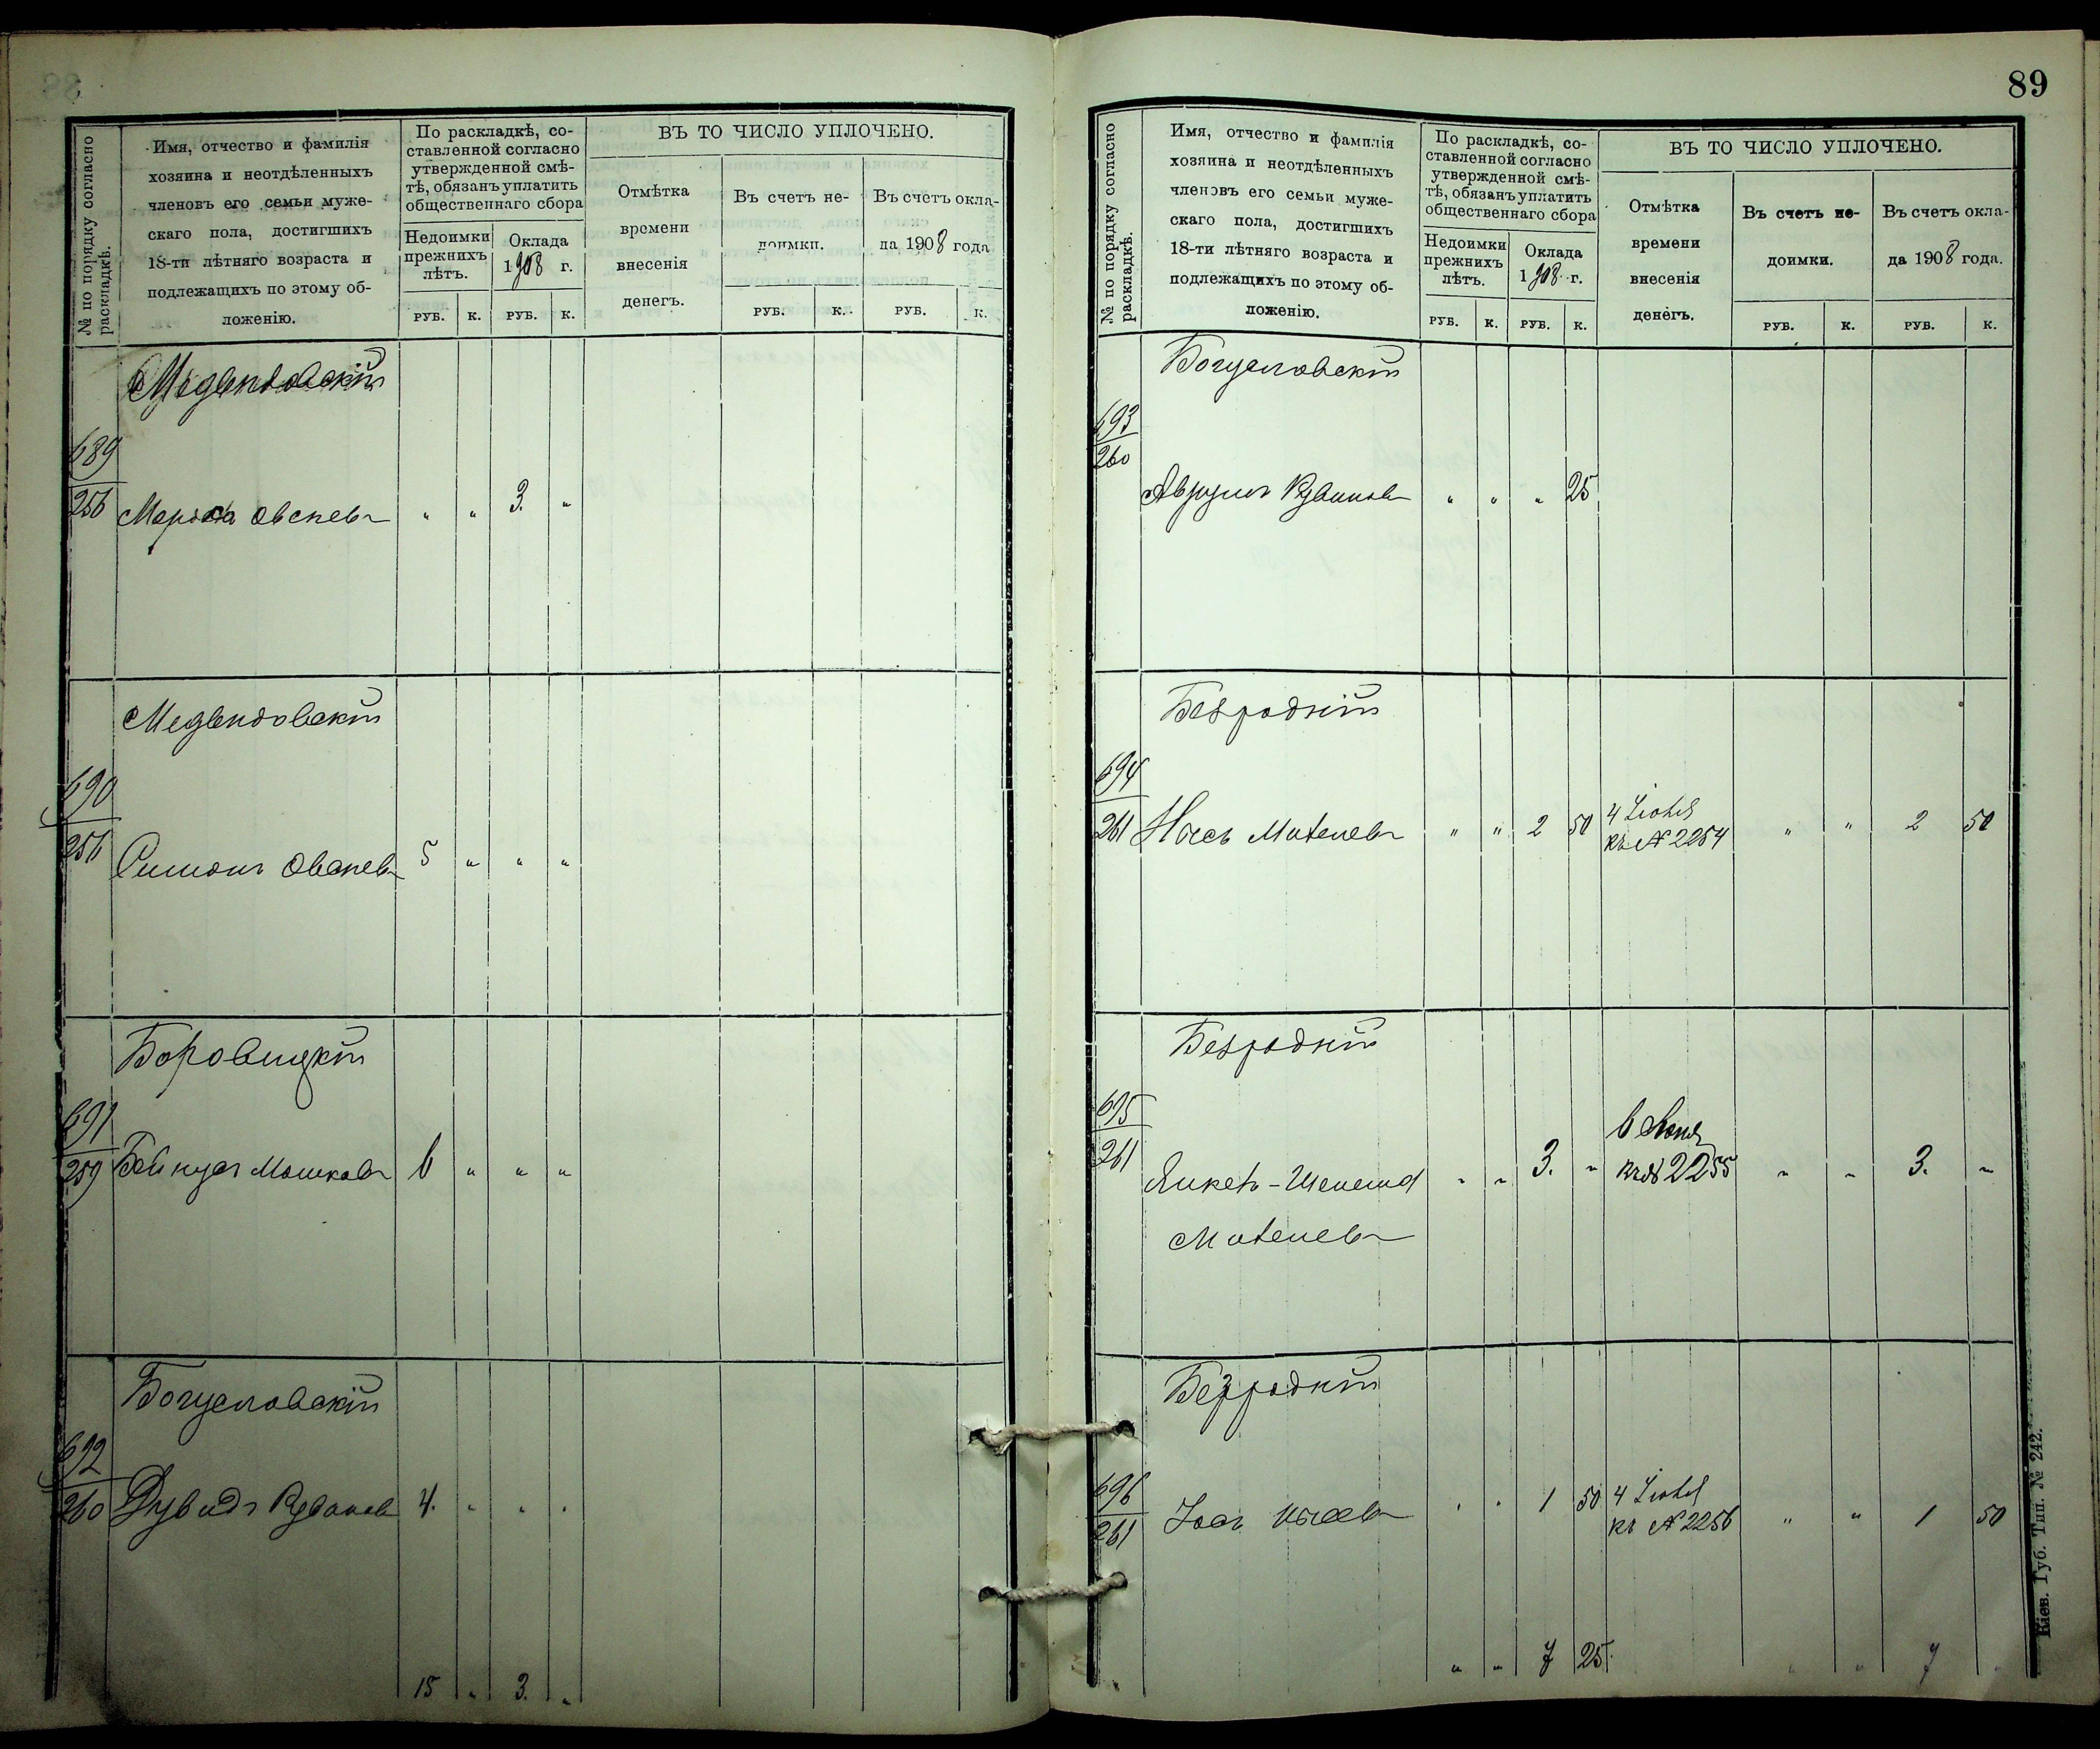 № по порядку согласно
раскладкѣ.
Имя, отчество и фамилія
хозяина и неотдѣленныхъ
членовъ его семьи муже-
скаго пола, достигшихъ
18-ти лѣтняго возраста и
подлежащихъ по этому об-
ложенію.
По раскладкѣ, со-
ставленной согласно
утвержденной смѣ-
тѣ, обязанъ уплатить
общественнаго сбора
Недоимки
прежнихъ
лѣтъ.
Оклада
1908 г.
ВЪ ТО ЧИСЛО УПЛОЧЕНО.
Отмѣтка
времени
внесенія
денегъ.
Въ счетъ не-
доимки.
Въ счетъ окла-
да 1908 года
РУБ. К. РУБ. К. РУБ. К. РУБ. К.
Медвндовскій
689
256 Овсеевъ " " 3. "
Медвндовскій
690
256 Симонъ Овсеевъ 5 " " "
Боровицкій
691
259 Бейнусъ Мошковъ 6 " " "
Богуславскій
692
260 Дувидъ Рувиновъ 4. " " "
15 " 3. "
89
№ по порядку согласно
раскладкѣ.
Имя, отчество и фамилія
хозяина и неотдѣленныхъ
членовъ его семьи муже-
скаго пола, достигшихъ
18-ти лѣтняго возраста и
подлежащихъ по этому об-
ложенію.
По раскладкѣ, со-
ставленной согласно
утвержденной смѣ-
тѣ, обязанъ уплатить
общественнаго сбора
Недоимки
прежнихъ
лѣтъ.
Оклада
1908 г.
ВЪ ТО ЧИСЛО УПЛОЧЕНО.
Отмѣтка
времени
внесенія
денегъ.
Въ счетъ не-
доимки.
Въ счетъ окла-
да 1908 года.
РУБ. К. РУБ. К. РУБ. К. РУБ. К.
Богуславскій
693
260
Аврумъ Рувиновъ " " " 25
Безродній
694
261 Мотелевъ " " 2 50 4
къ № 2254 " " 2 50
Безродній
695
261
Янкель - " " 3. " 6
къ № 2255 " " 3. "
Мотелевъ
Безродній
696
261 " " 1 50 4
къ № 2256 " " 1 50
" " 7 25 " " 7 "
Кіев. Губ. Тип. № 242.